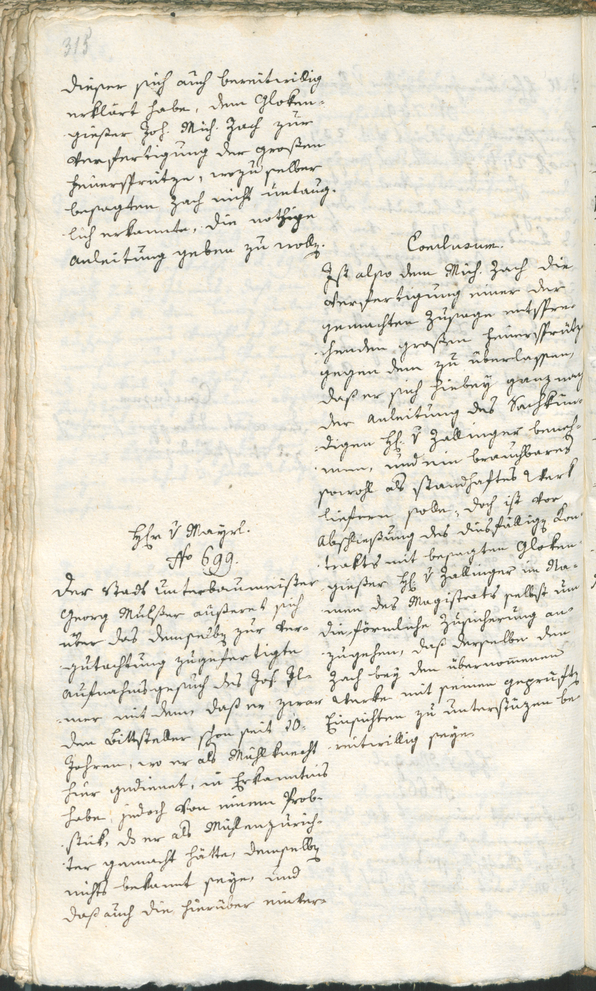 315
dieser sich auch bereitwillig
erklärt habe, dem Gloken-
gießer Joh. Mich. Zach zur
Verfertigung der großen
Feuerspritze, wozu selber
besagten Zach nicht untaug-
lich erkennte, die nothige
Anleitung geben zu wolln.
Conclusum.
Ist also dem Mich. Zach die
Verfertigung einer der
gemachten Zusage entspre-
chenden großen Feuersprütze
gegen dem zu überlassen,
daß er sich hiebey ganz nach
der Anleitung des Sachkün-
digen H. v Zallinger beneh-
men, und ein brauchbares
sowohl als standhaftes Werk
liefern solle, doch ist vor
Abschließung des diesfälligen Kon-
trakts mit besagten Gloken-
gießer H. v Zallinger im Na-
men des Magistrats selbst um
die förmliche Zusicherung an-
zugehen, daß derselbe den
Zach bey dem übernommenen
Werke mit seinen geprüften
Einsichten zu unterstüzen be-
reitwillig seye.
Hr v Mayrl.
No 699.
Der Stadtunterbaumeister
Georg Mulser äußeret sich
über das demselben zur Be-
gutachtung zugefertigte
Aufnahmsgesuch des Jos.
mer mit dem, daß er zwar
den Bittsteller schon seit 10
Jahren, wo er als Mühlknecht
hier gedienet, in Erkanntnis
habe, jedoch von einem Prob-
stük, so er als Mühlenzurich-
ter gemacht hätte, demselben
nichts bekannt seye, und
daß auch die hierüber einver-